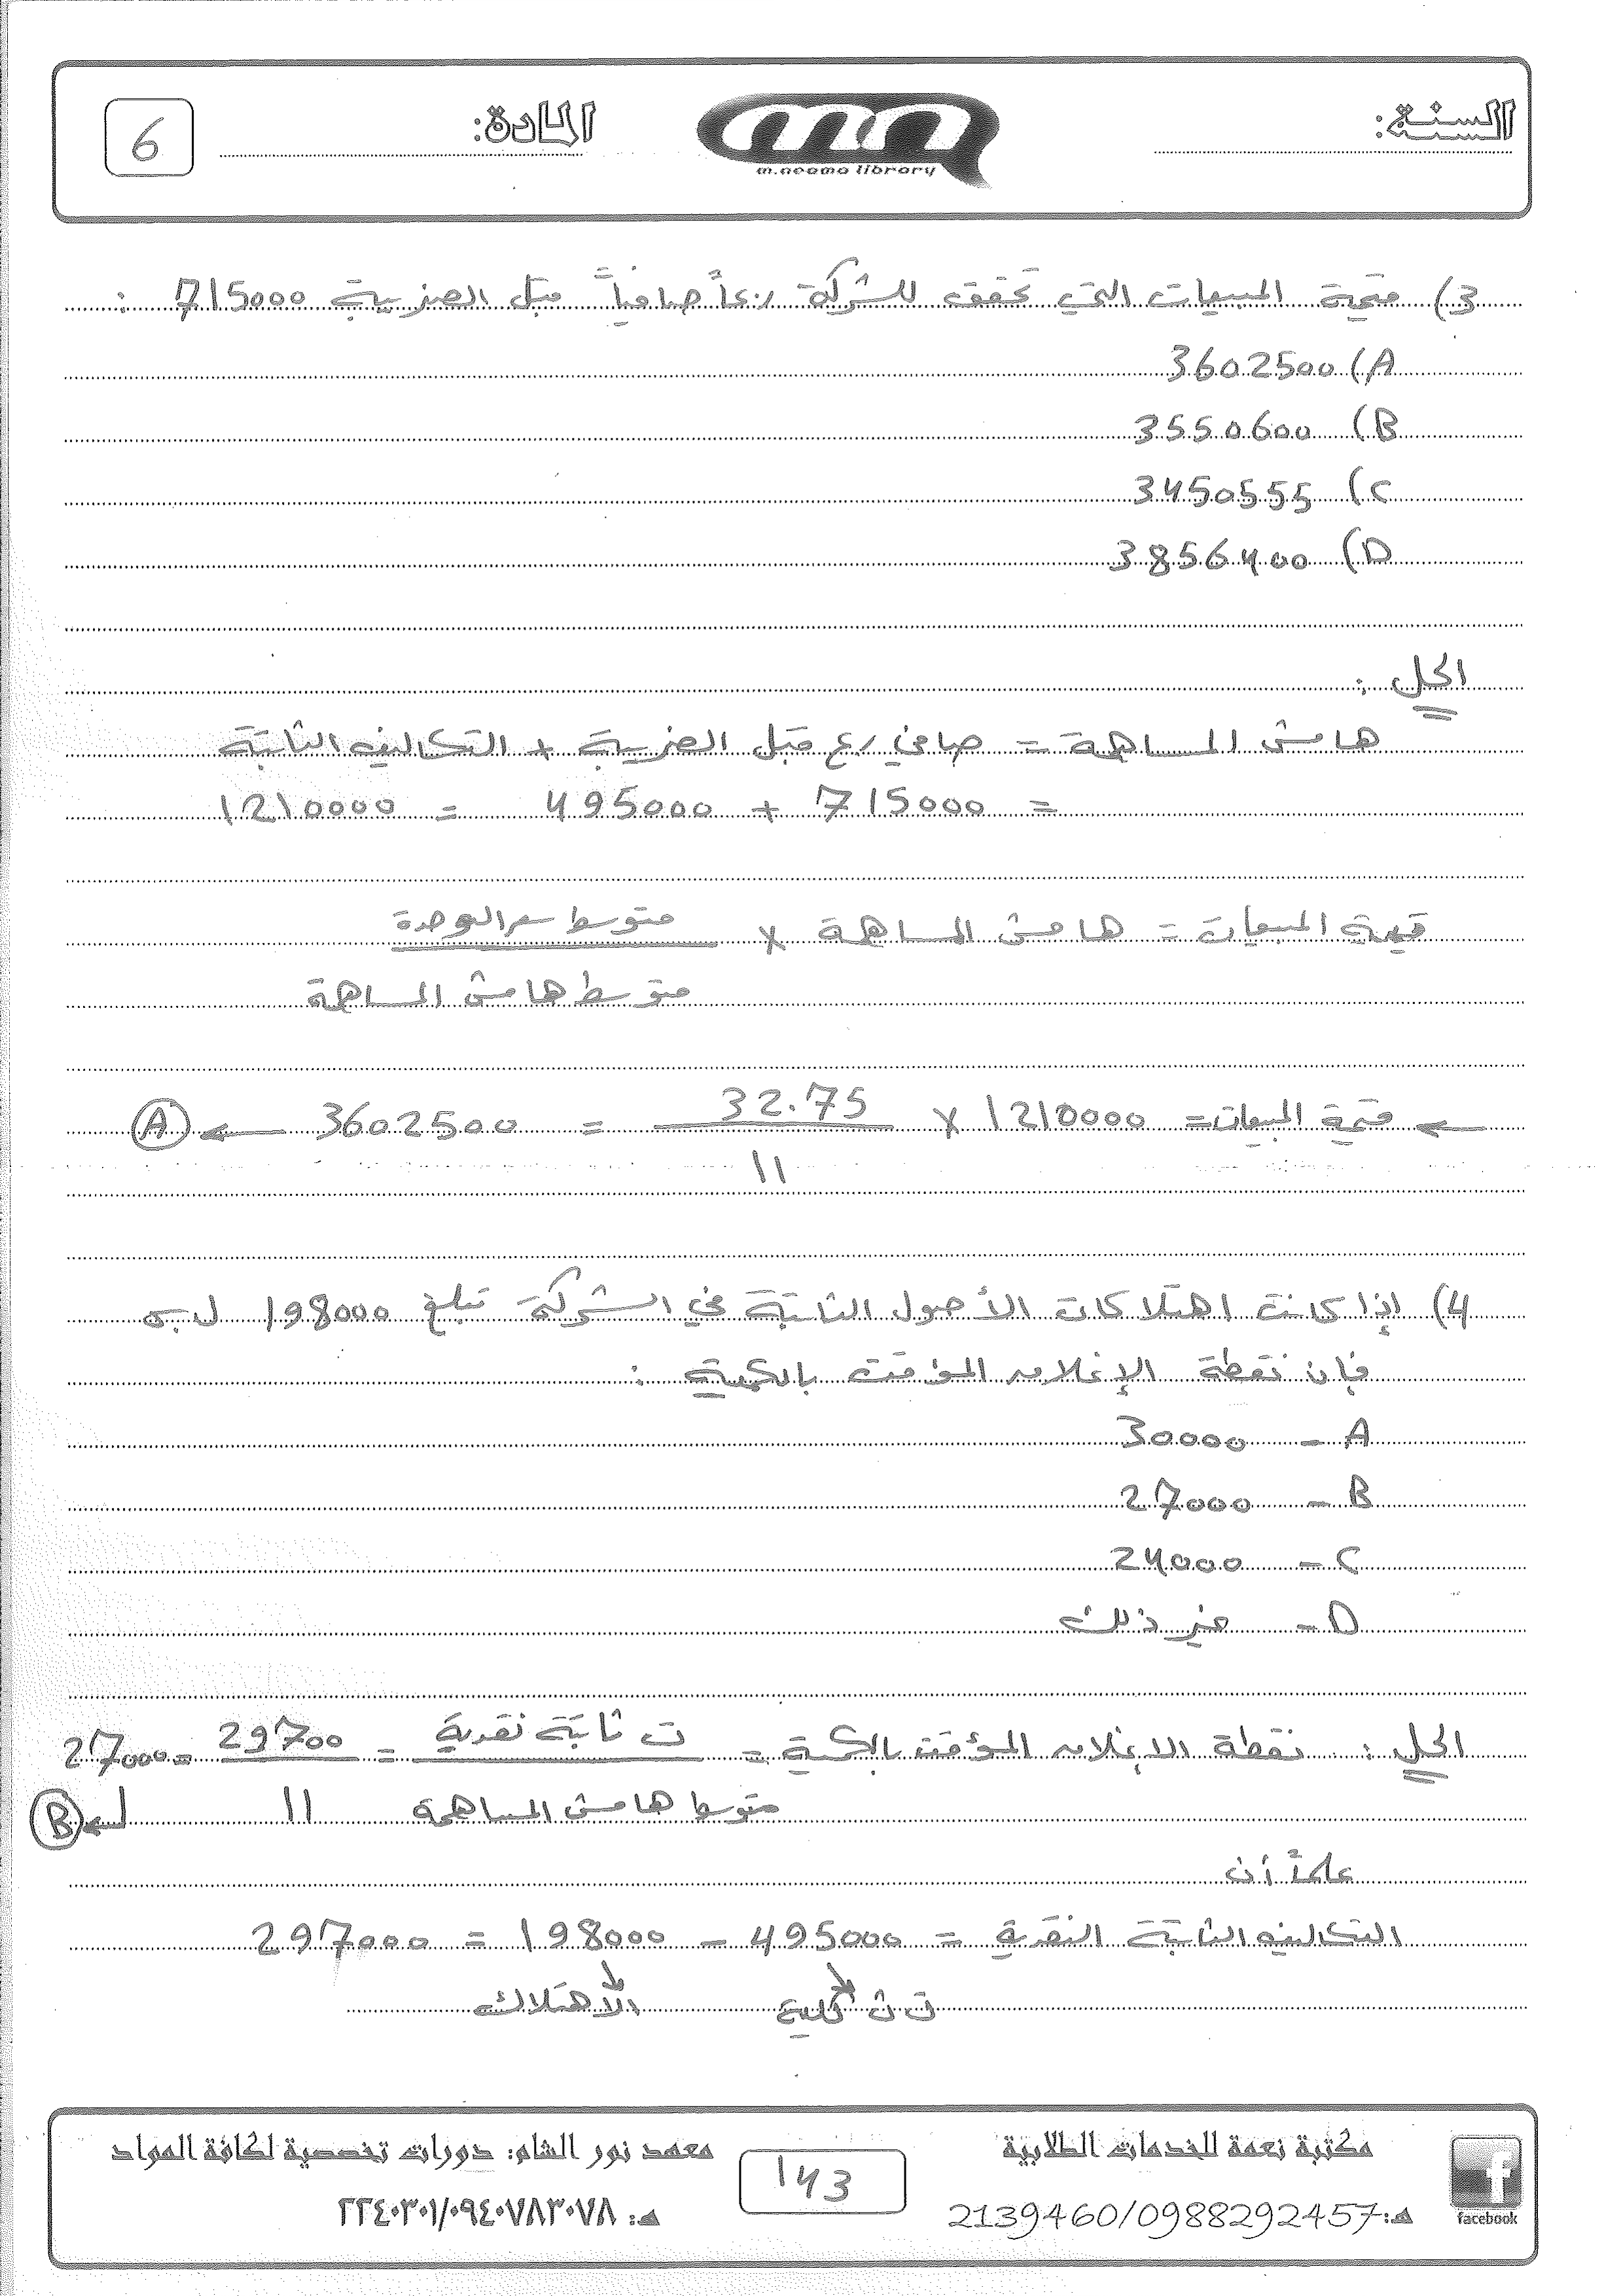 السنة:
m.neama library
المادة:
6
3) قيمة المبيعات التي تحقق للشركة ربحاً صافياً قبل الضريبة 715000 :
A) 3602500
B) 3550600
C) 3450555
D) 3856400
الحل :
هامش المساهمة = صافي ربح قبل الضريبة + التكاليف الثابتة
= 715000 + 495000 = 1210000
قيمة المبيعات = هامش المساهمة × متوسط سعر الوحدة
متوسط هامش المساهمة
← قيمة المبيعات = 1210000 × 32.75 = 3602500 ← A
11
4) إذا كانت اهتلاكات الأصول الثابتة في الشركة تبلغ 198000 ل.س
فإن نقطة الإغلاق المؤقت بالكمية :
A - 30000
B - 27000
C - 24000
D - غير ذلك
الحل : نقطة الإغلاق المؤقت بالكمية = ت ثابتة نقدية = 29700 = 27000
متوسط هامش المساهمة 11 ← B
علماً أن
التكاليف الثابتة النقدية = 495000 - 198000 = 297000
ت ث كلية الاهتلاك
مكتبة نعمة للخدمات الطلابية
هـ: 2139460/0988292457
facebook
143
معهد نور الشام: دورات تخصصية لكافة المواد
هـ: ٢٢٤٠٣٠١/٠٩٤٠٧٨٣٠٧٨